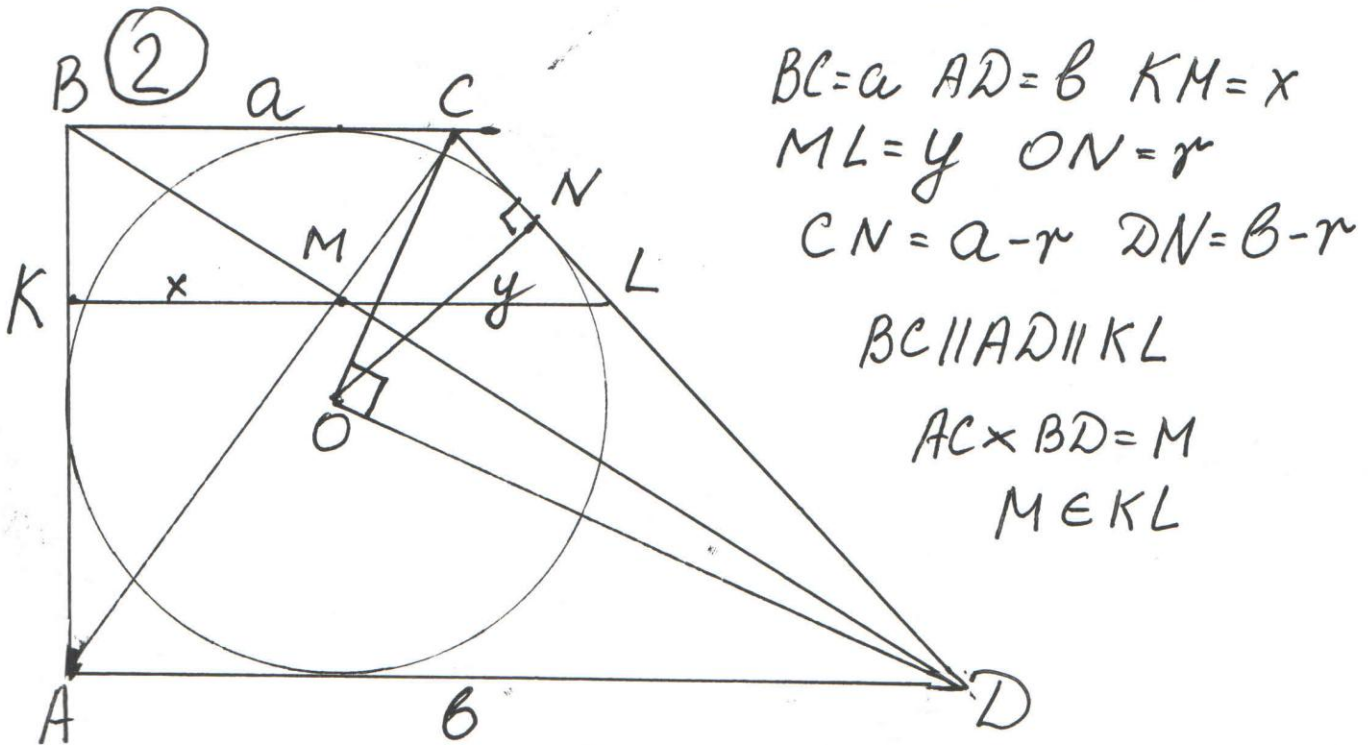 2
B a C
N
M
K x y L
O
A в D
BC=a AD=в KM=x
ML=y ON=r
CN=a-r DN=в-r
BC||AD||KL
AC×BD=M
M∈KL